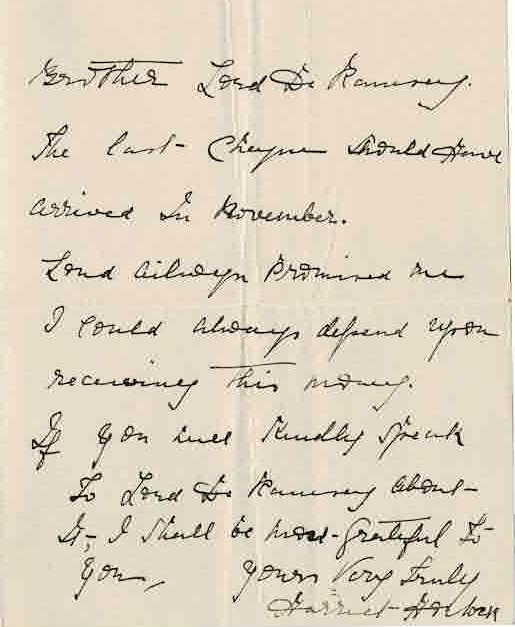 Brother Lord De Ramsey.
The last Cheque should have
arrived In November.
Lord Ailwyn Promised me
I could always depend upon
receiving this money.
If you will Kindly Speak
To Lord De Ramsey about
It, I Shall be most grateful to
you, yours Very Truly
Harriet